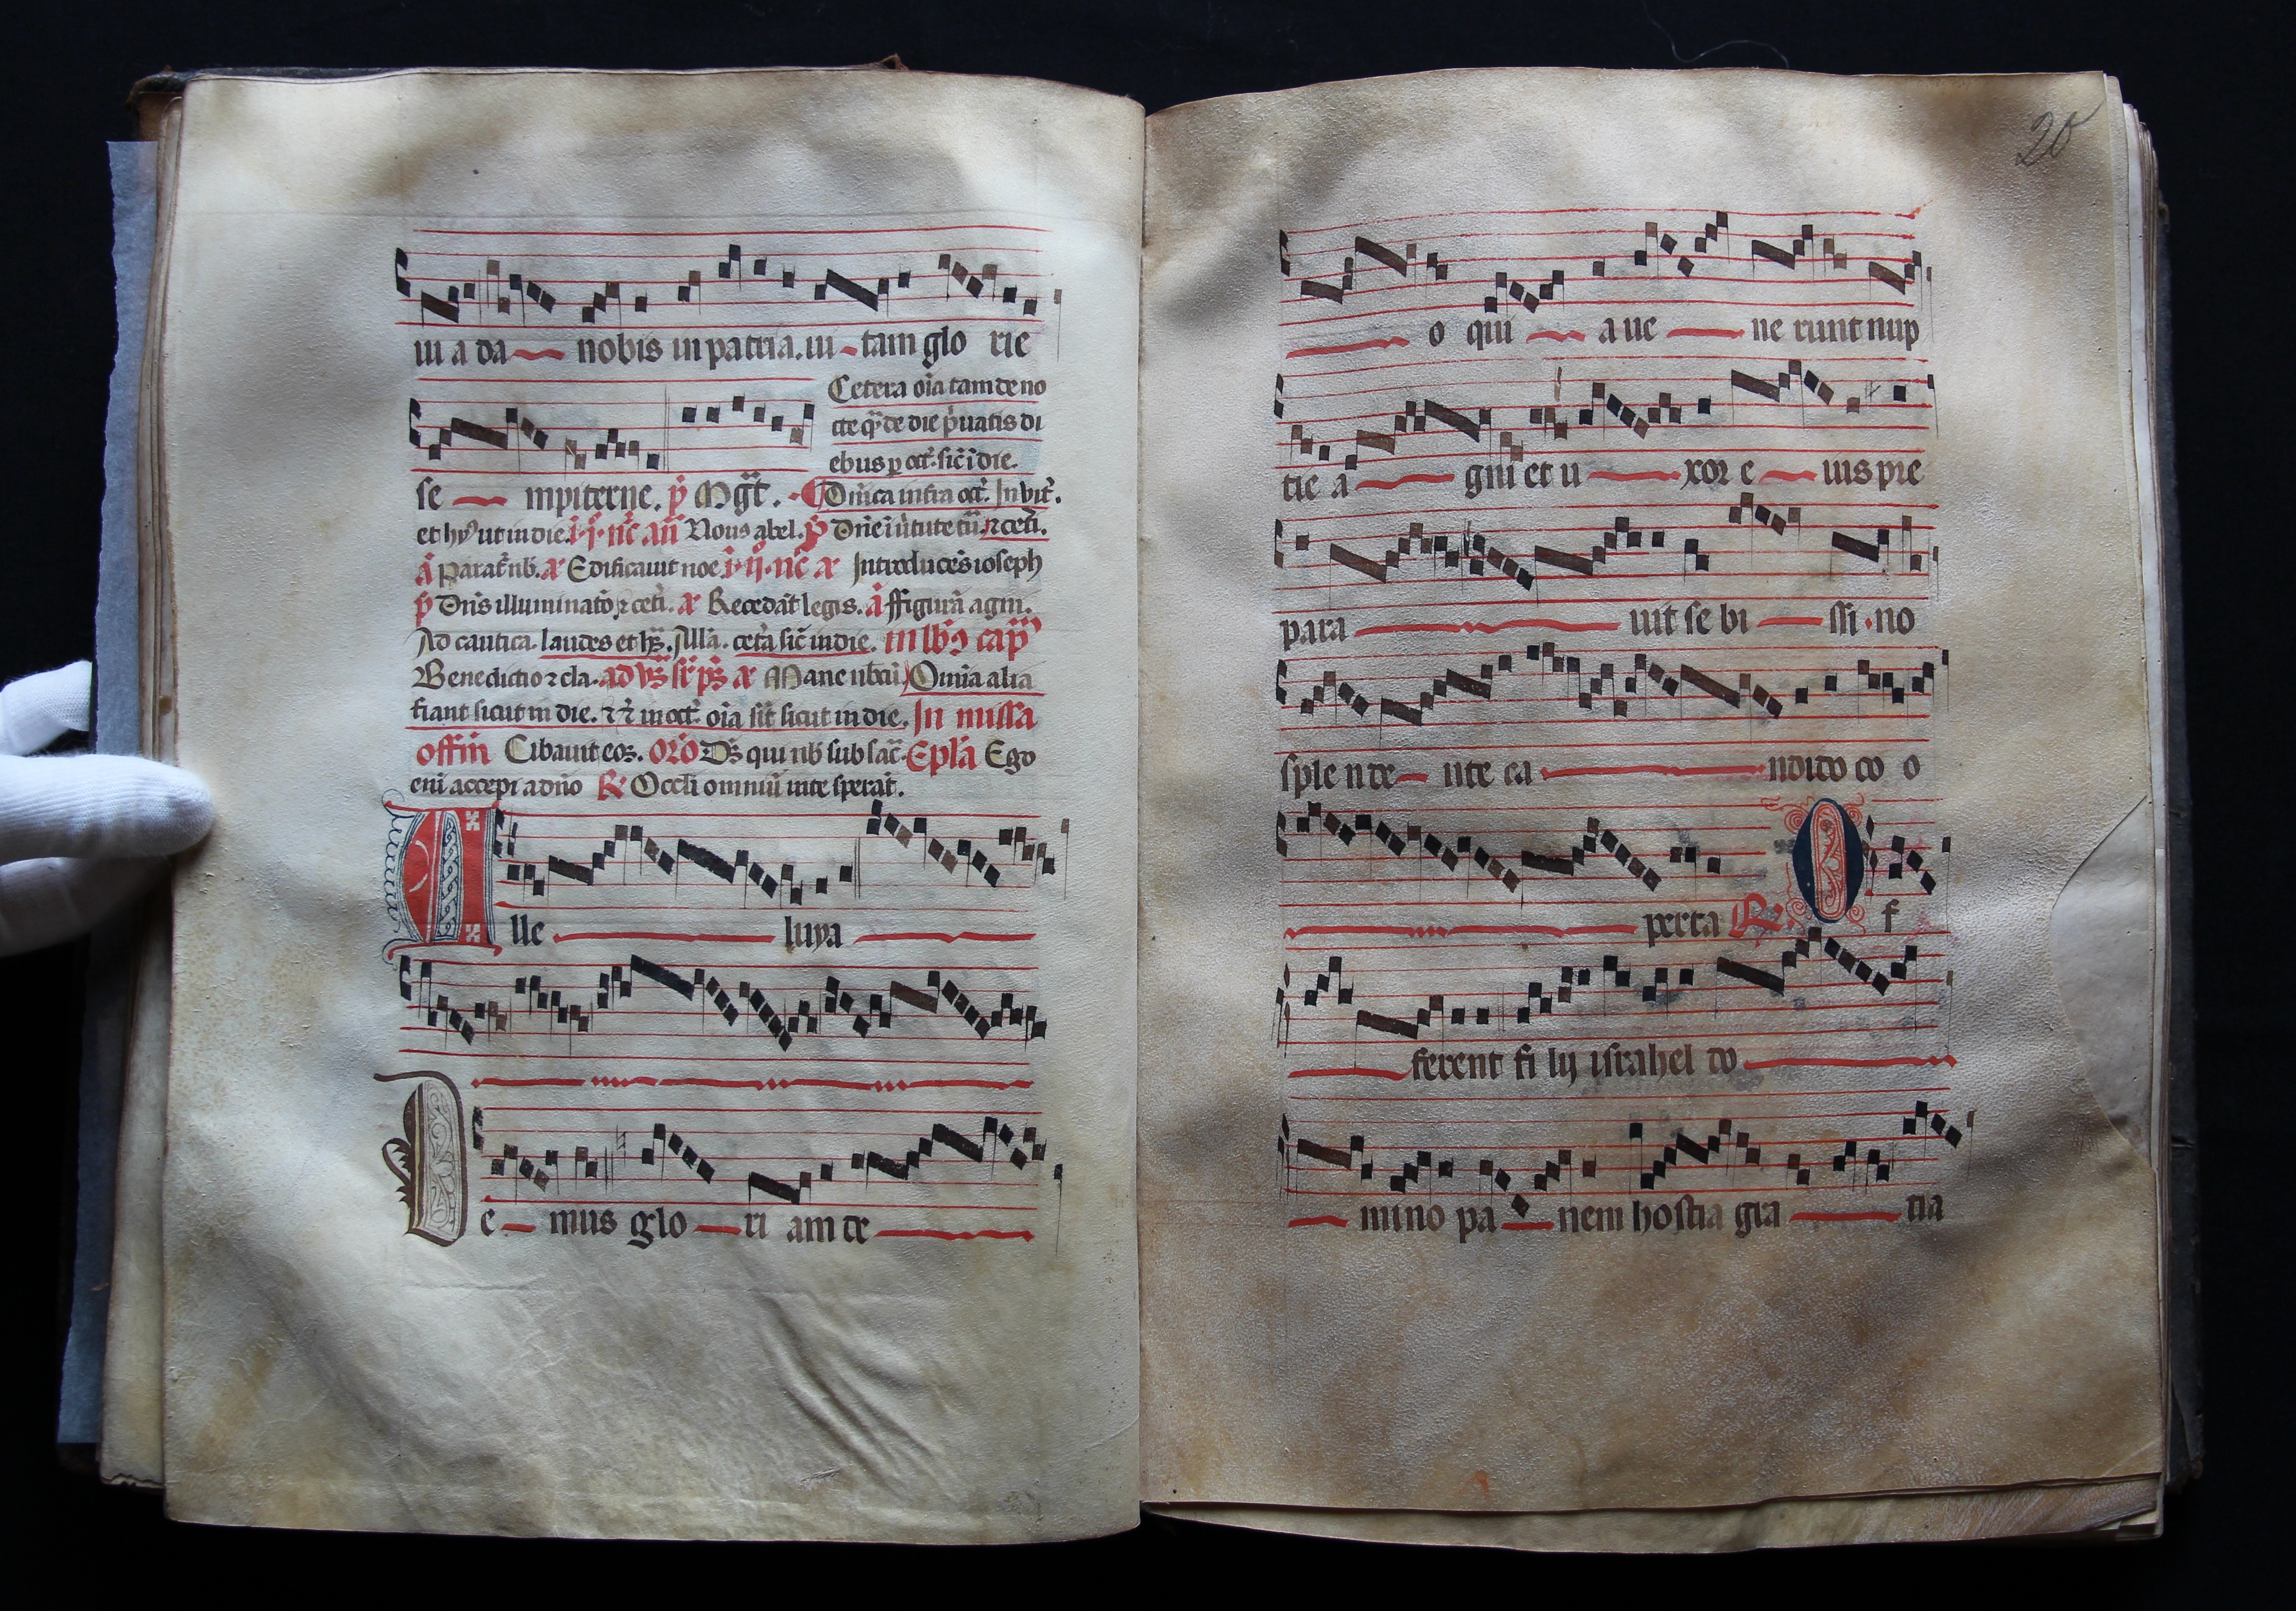 ui a da nobis in patria. ui tam glo rie
Cetera oīa tam de no
cte q̄ de die p̄uatis di
ebus p oct̄. sic̄ ī die.
se mpiterne. p̄ Mḡt.
Dn̄ica infra oct̄. Invit̄.
et hȳ ut in die. i. ij. nc̄ an̄ Nous abel. p̄ Dn̄e ī ûtute tū. ⁊ cet̄i.
ā Parat̄ nb̄. Edificauit noe i. ij. nc̄ Introducēs ioseph
p̄ Dn̄s illuminatō ⁊ cet̄i. Recedāt legis. ā ffigurā agni.
Ad cantica. laudes et hs̄. Illā. cet̄a sic̄ in die. in lb̄ cap̄
Benedictio ⁊ cla. ad vs̄ Mane nb̄cū Om̄ia alia
fiant sicut in die. ⁊ in oct̄. oīa sīt sicut in die. In missa
offm̄ Cibauit eos. Orō Ds̄ qui nb̄ sub sac̄. Epl̄a Ego
enī accepi a dn̄o R̄ Occl̄i omniū in te sperāt.
A lle luya
D e mus glo ri am de
20
o qui a ue ne runt nup
tie a gni et u xor e ius pre
para uit se bi ssi no
sple n de nte ca ndido co o
perta R̄. O f
ferent fi lij israhel do
mino pa nem hostia gra tia